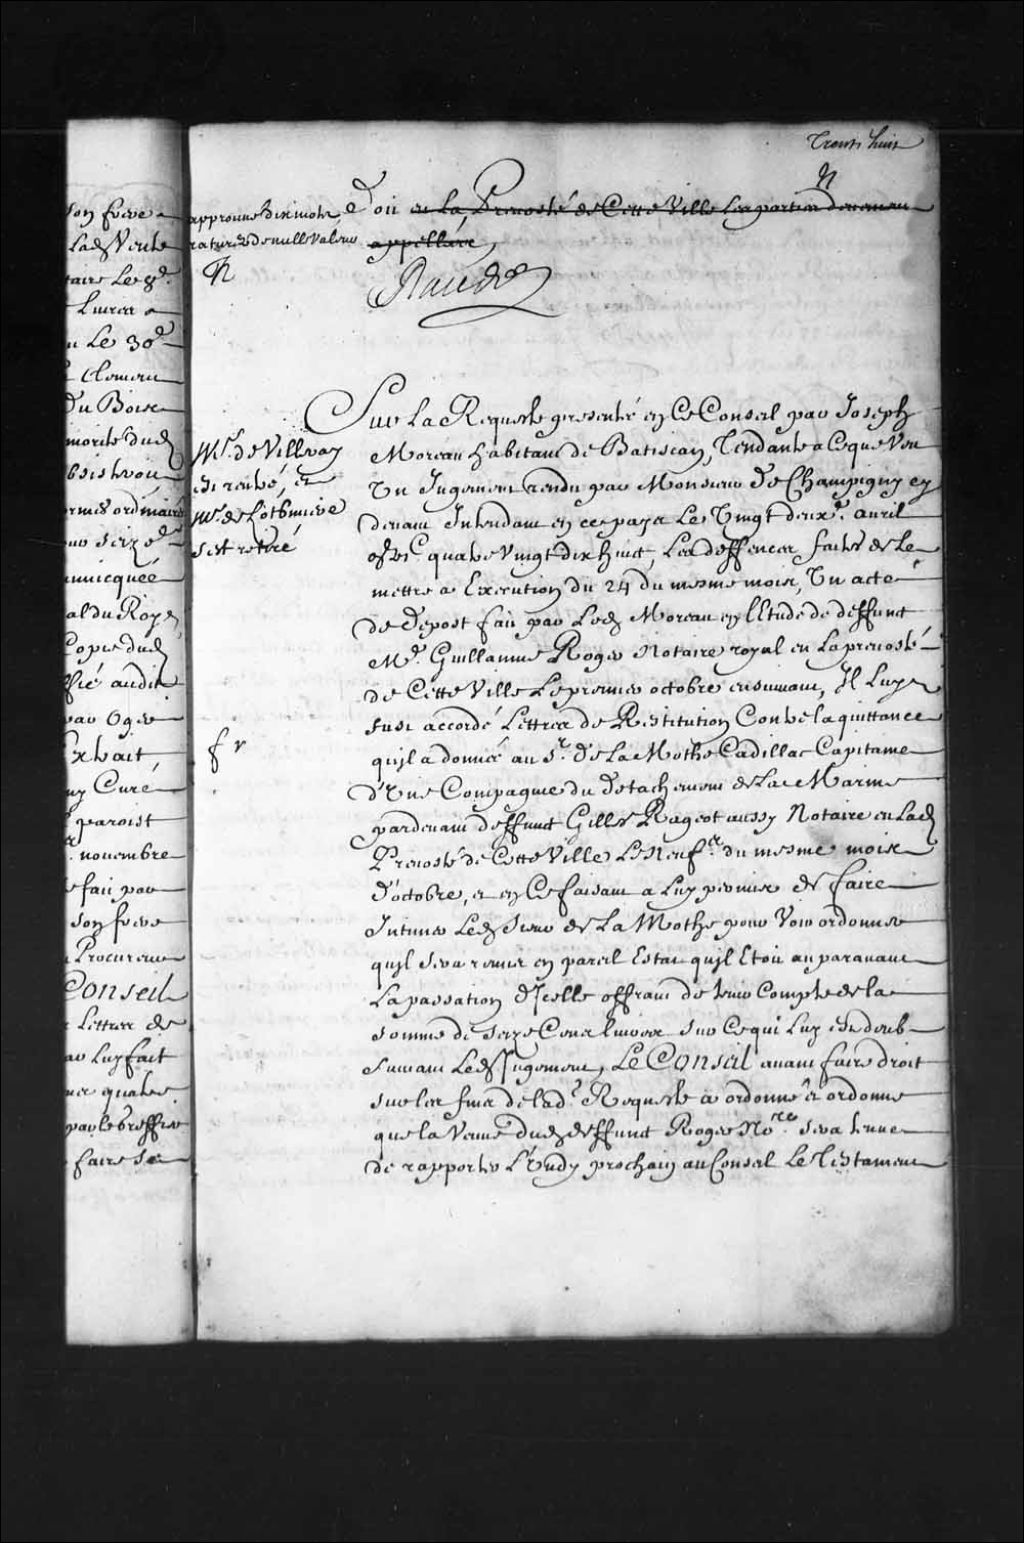 Trente huit
son frere
Lad Vente
taire Le 8e
Livrer a
Le 30e
Clement
Du Bois
morte dud
ormes ordinaires
seize
unicquée
al du Roy
Copie dud
ffié audit
par Oger
Extrait
Curé
paroist
novembre
fait par
son frere
Procureur
Conseil
Lettres de
Luy fait
quatre
par le greffier
faire Se
approuvé dix mots
raturés de nulle valeur
R
Doit en La Prevosté de Cette Ville Les parties demeurant
appellées
R
Raudot
Sur La Requeste presenté en Ce Conseil par Joseph
Moreau habitant de Batiscan, Tendante a Ce que Veu
Un Jugement rendu par Monsieur De Champigny cy
devant Intendant en ce pays Le Vingt deuxe. avril
gbic quatre Vingt dix huit, Les deffences faites de Le
mettre a Execution du 24 du mesme mois, Un acte
de Depost fait par Led Moreau en l'Etude de deffunct
Me. Guillaume Roger Notaire royal en La prevosté
de Cette Ville Le premier octobre ensuivant, Il Luy
fust accordé Lettres de Restitution Contre la quittance
quil a donneé au Sr. De La Mothe Cadillac Capitaine
d'Une Compagnie du Detachement de La Marine
pardevant deffunct Gilles Rageot aussy Notaire en Lad
Prevosté de Cette Ville Le Neufe. du mesme mois
d'octobre, et en Ce faisant a Luy permis de faire
Intimer Led Sieur de La Mothe pour Voir ordonner
quil sera remis en pareil Estat quil Etoit auparavant
La passation d'Icelle offrant de tenir Compte de la
somme de seize Cent livres sur Ce qui Luy est deub
suivant Led Jugement, Le Conseil avant faire droit
sur les fins de lad. Requeste a ordonné et ordonne
que la Veuve dud deffunct Roger Nore. sera tenue
de rapporter L'undy prochain au Conseil Le Testament
Mr. de Villeray
est rentré, et
Mr. de Lotbiniere
s'est retiré
fr